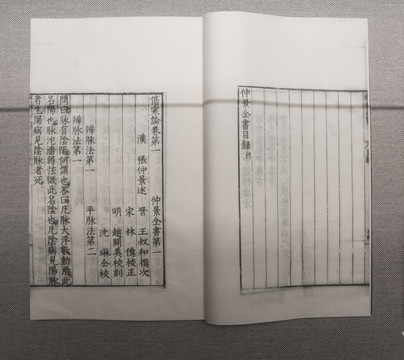 仲景全書目録終
傷寒論卷第一 仲景全書第一
漢 張仲景述
晋 王叔和撰次
宋 林億校正
明 趙開美校刻
沈琳仝校
辨脉法第一 平脉法第二
辨脉法第一
問曰脉有陰陽何謂也答曰凡脉大浮數動滑此
名陽也脉沈濇弱弦微此名陰也凡陰病見陽脉
者生陽病見陰脉者死